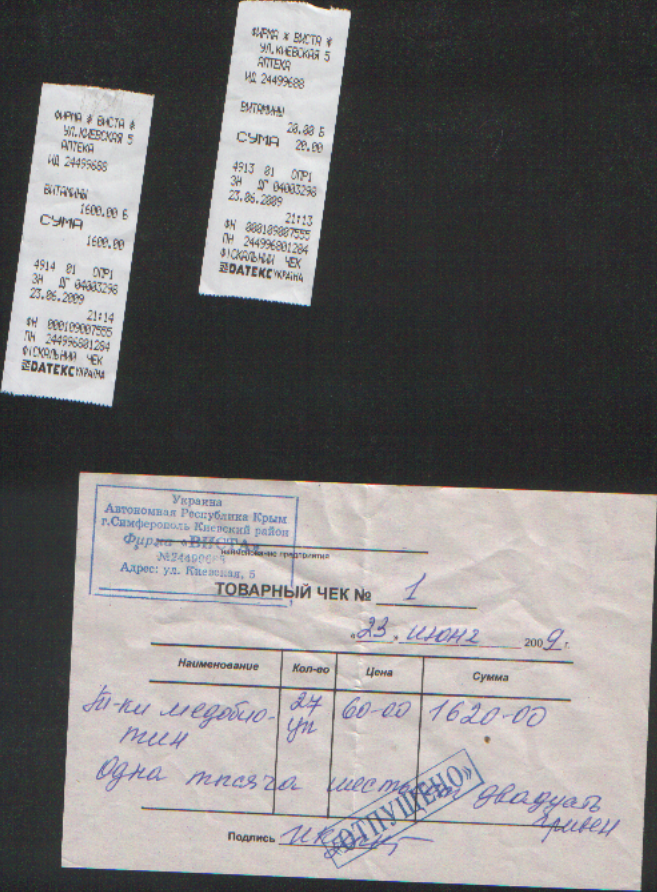 ФИРМА * ВИСТА *
УЛ.КИЕВСКАЯ 5
АПТЕКА
ИД 24499688
ВИТАМИНЫ
1600.00 Б
СУМА
1600.00
4914 01 ОПР1
ЗН ДГ 04003298
23.06.2009
21:14
ФН 000109007555
ПН 244996801284
ФІСКАЛЬНИЙ ЧЕК
DATEКС УКРАЇНА
ФИРМА * ВИСТА *
УЛ.КИЕВСКАЯ 5
АПТЕКА
ИД 24499688
ВИТАМИНЫ
20.00 Б
СУМА 20.00
4913 01 ОПР1
ЗН ДГ 04003298
23.06.2009
21:13
ФН 000109007555
ПН 244996801284
ФІСКАЛЬНИЙ ЧЕК
DATEКС УКРАЇНА
Украина
Автономная Республика Крым
г.Симферополь Киевский район
Фирма «ВИСТА»
наименование предприятия
Адрес: ул. Киевская, 5
ТОВАРНЫЙ ЧЕК № 1
«23» июня 2009 г.
Наименование Кол-во Цена Сумма
Т-ки медобио- 27 60-00 1620-00
тин уп
Одна тысяча шестьсот двадцать
гривен
«ОТПУЩЕНО»
Подпись